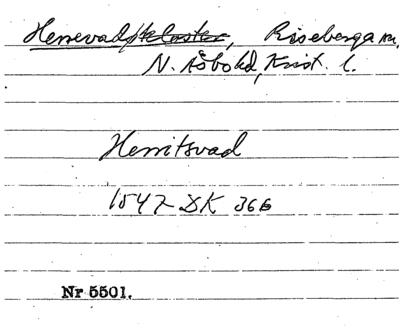 Herrevadskloster, Riseberga sn.
N. Åsbo hd, Krist. l.
Herritsvad
1547 DK 366
Nr 5501.